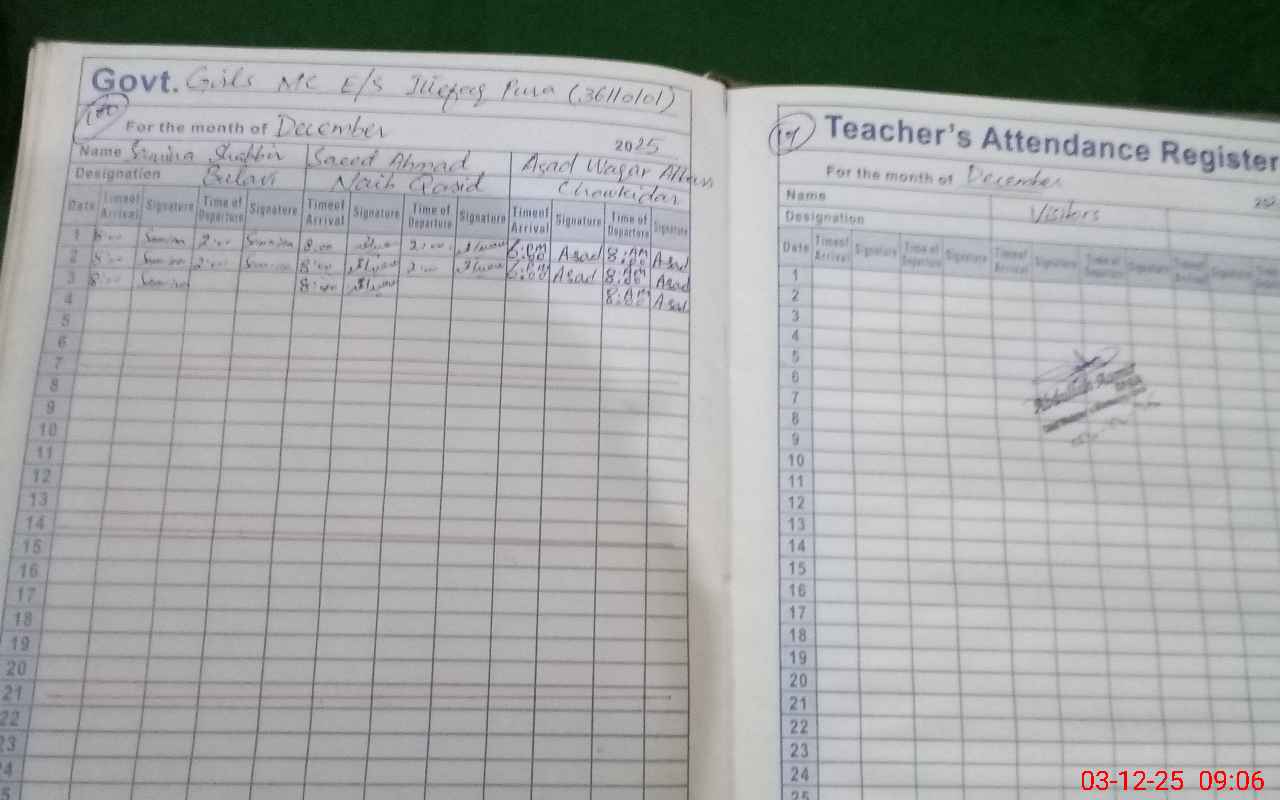 Govt. Girls MC E/S Pura (36110101)
For the month of December 2025
Name Samina Shabbir Saeed Ahmad Asad Waqar
Designation Bulavi Naib Qasid Chowkidar
Date Time of Arrival Signature Time of Departure Signature Time of Arrival Signature Time of Departure Signature Time of Arrival Signature Time of Departure Signature
1 8:00 Samina 2:00 Samina 8:00 2:00 6:PM 00 Asad 8:AM 00 Asad
2 8:00 Samina 2:00 Samina 8:00 2:00 6:PM 00 Asad 8:AM 00 Asad
3 8:00 Samina 8:00 8:AM 00 Asad
4
5
6
7
8
9
10
11
12
13
14
15
16
17
18
19
20
21
22
23
24
5
191 Teacher's Attendance Register
For the month of December 202
Name
Designation Visitors
Date Time of Arrival Signature Time of Departure Signature Time of Arrival Signature Time of Departure Signature Time of Arrival Signature Time of Departure
1
2
3
4
5
6
7
8
9
10
11
12
13
14
15
16
17
18
19
20
21
22
23
24
25
03-12-25 09:06